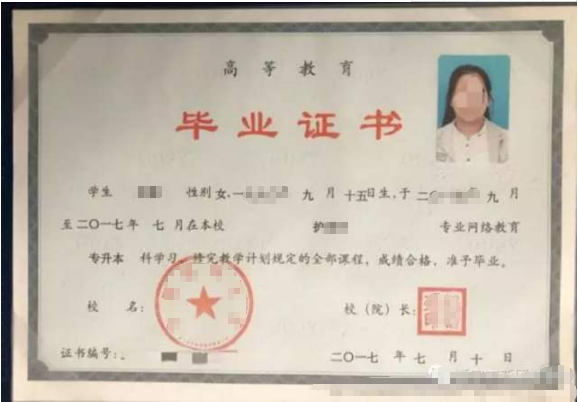 高等教育
毕业证书
学生 性别女，一 九月十五日生，于二〇 年九月
至二〇一七年七月在本校 护 专业网络教育
专升本 科学习，修完教学计划规定的全部课程，成绩合格，准予毕业。
校 名： 校（院）长：
证书编号： 二〇一七年七月十日